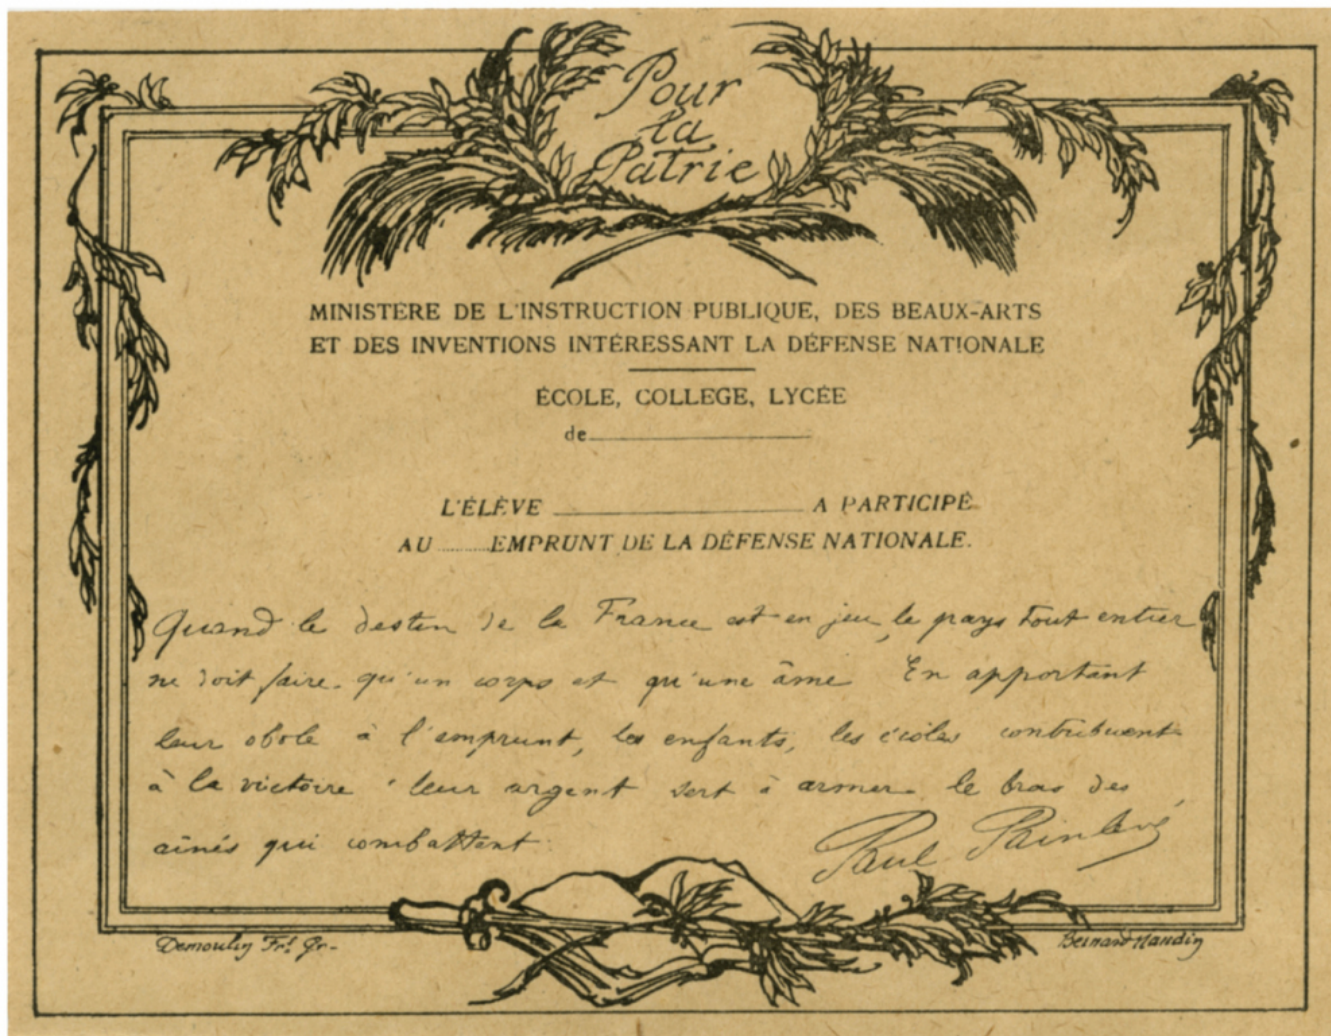 Pour
la
Patrie
MINISTÈRE DE L'INSTRUCTION PUBLIQUE, DES BEAUX-ARTS
ET DES INVENTIONS INTÉRESSANT LA DÉFENSE NATIONALE
ÉCOLE, COLLEGE, LYCÉE
de
L'ÉLÈVE A PARTICIPÉ
AU EMPRUNT DE LA DÉFENSE NATIONALE.
Quand le destin de la France est en jeu, le pays tout entier
ne doit faire qu'un corps et qu'une âme En apportant
leur obole à l'emprunt, les enfants, les écoles contribuent
à la victoire : leur argent sert à armer le bras des
aînés qui combattent.
Paul Painlevé
Demoulin Frs Gr-
Bernard Naudin